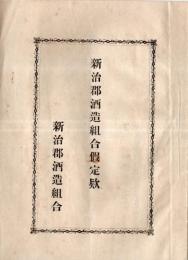 新治郡酒造組合假定款
新治郡酒造組合